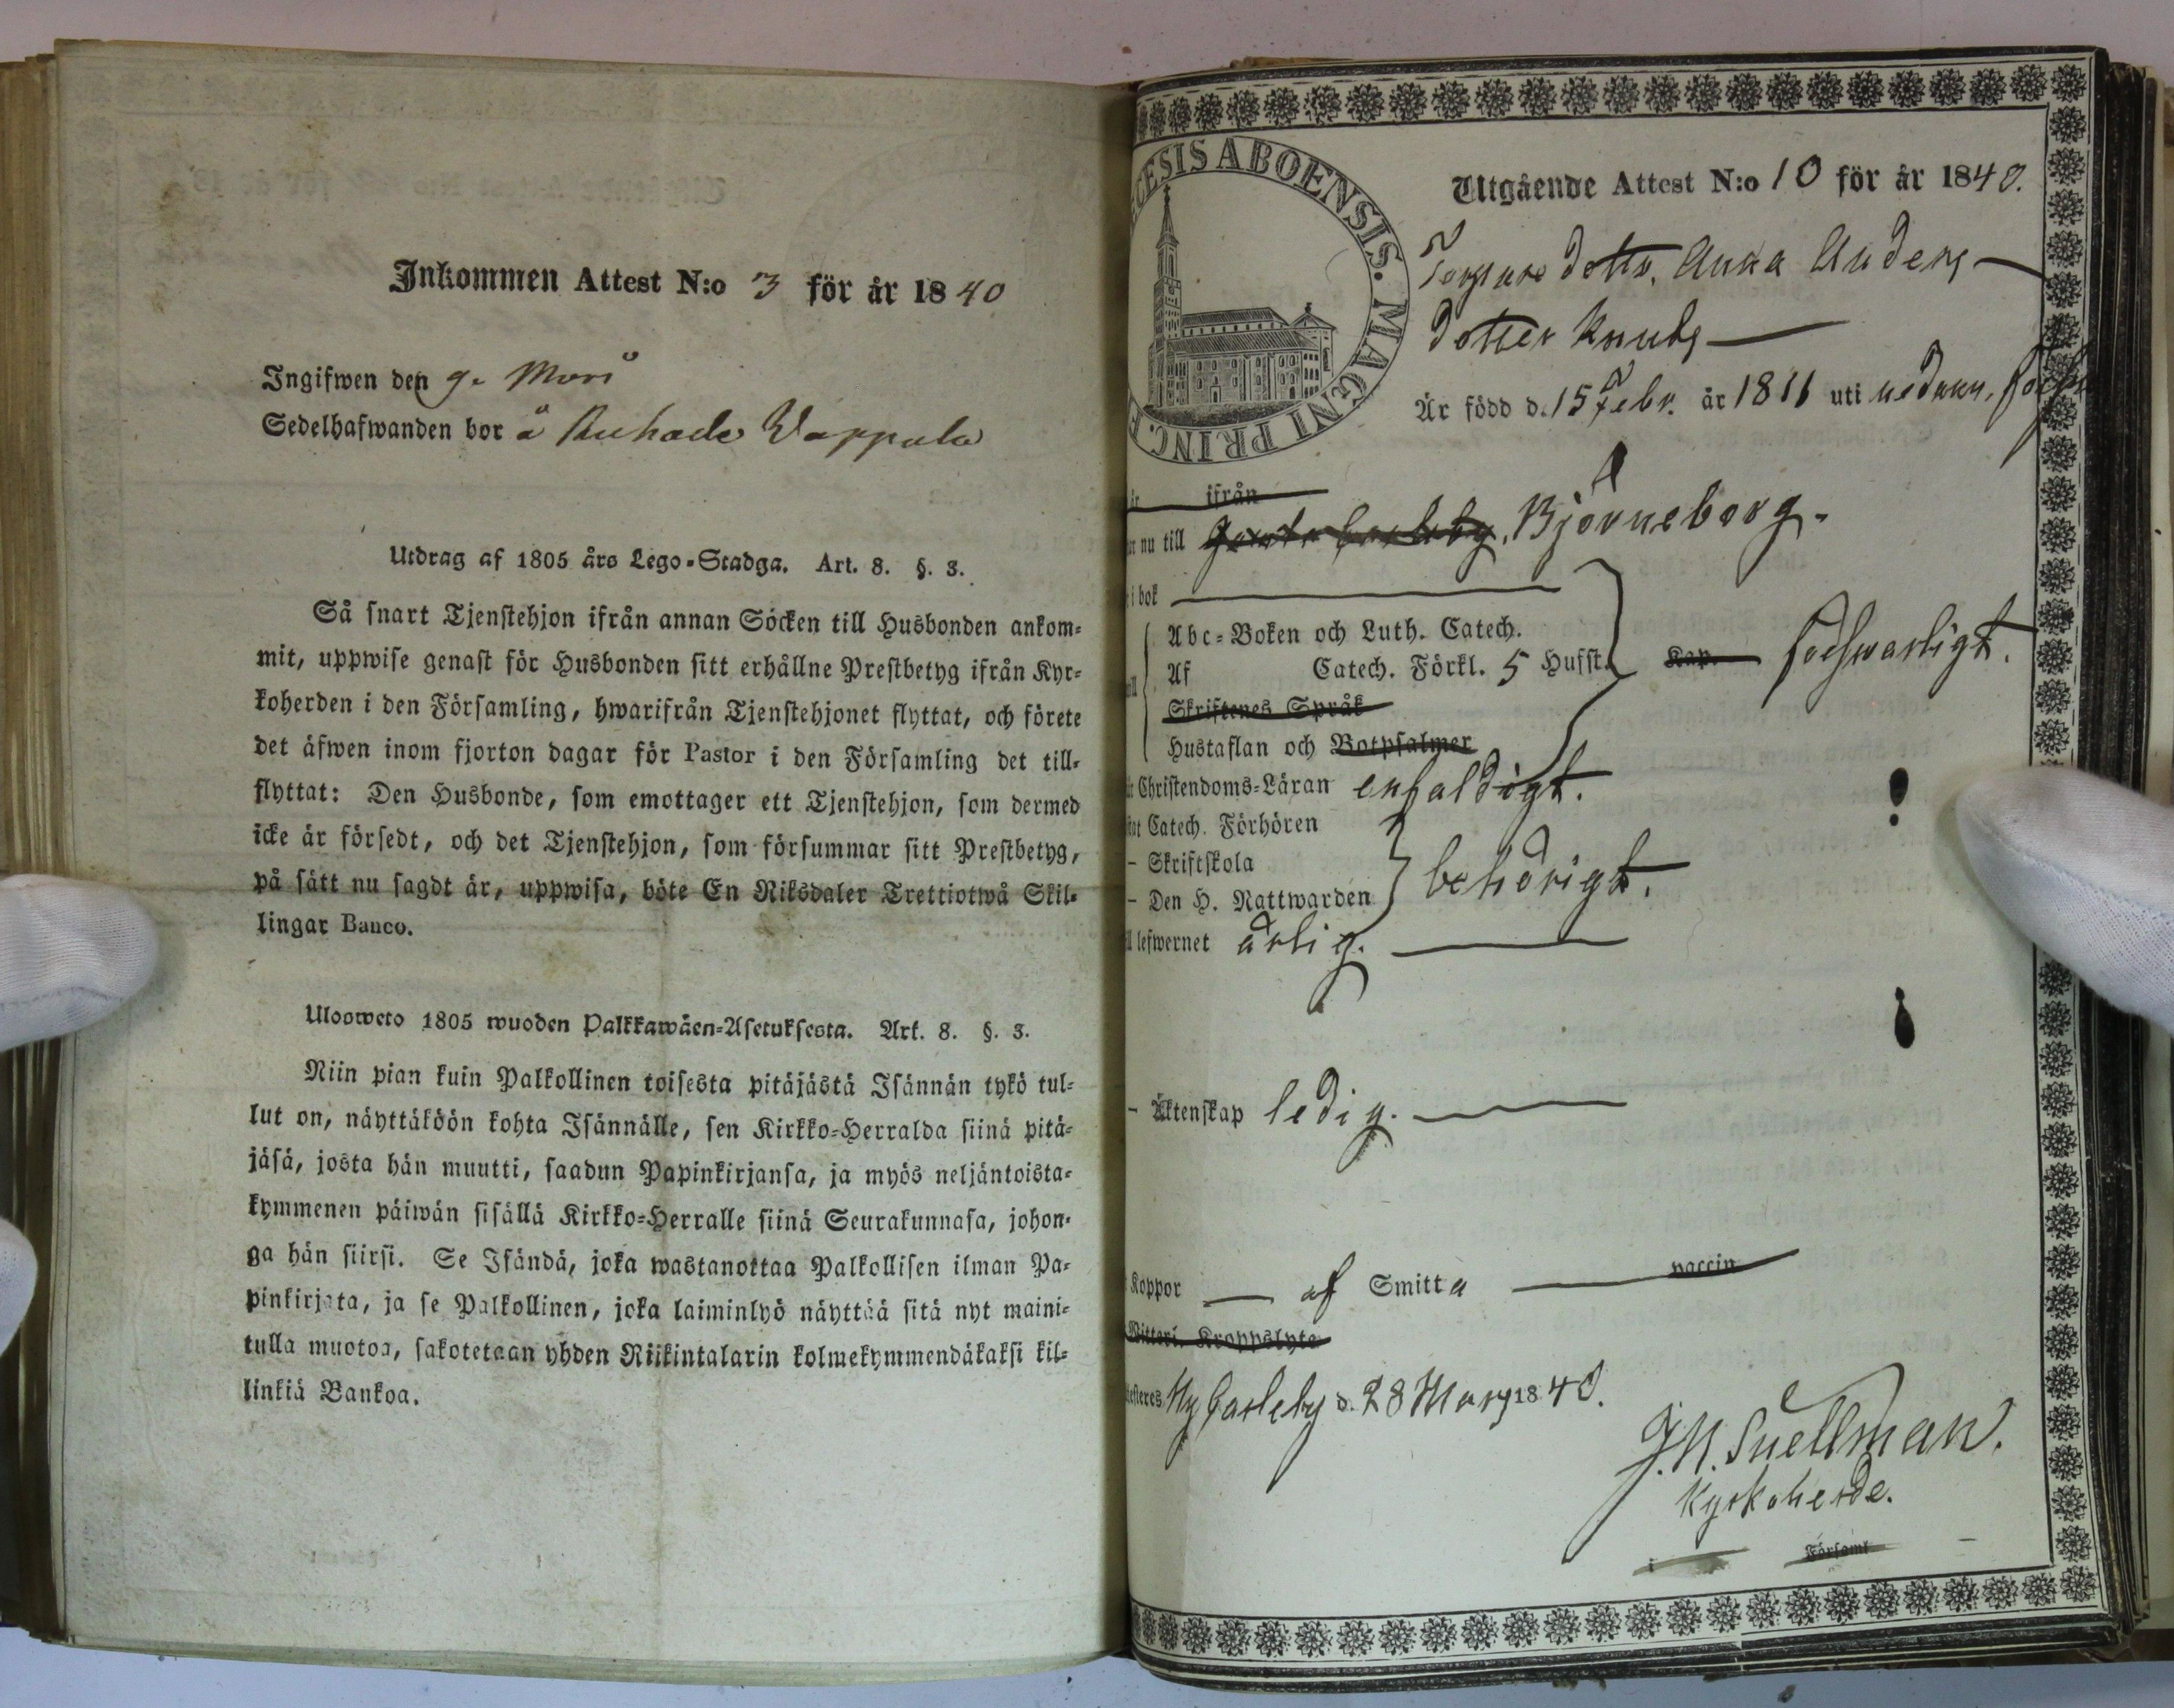 Inkommen Attest N:o 3 för år 1840
Ingifwen den 9. Mars
Sedelhafwanden bor å
Utdrag af 1805 års Lego-Stadga. Art. 8. §. 3.
Så snart Tjenstehjon ifrån annan Söcken till Husbonden ankom-
mit, uppwise genast för Husbonden sitt erhållne Prestbetyg ifrån Kyr-
koherden i den Församling, hwarifrån Tjenstehjonet flyttat, och förete
det äfwen inom fjorton dagar för Pastor i den Församling det till-
flyttat: Den Husbonde, som emottager ett Tjenstehjon, som dermed
icke är försedt, och det Tjenstehjon, som försummar sitt Prestbetyg,
på sätt nu sagdt är, uppwisa, böte En Riksdaler Trettiotwå Skil-
lingar Banco.
Uloosweto 1805 wuoden Palkkawäen-Asetuksesta. Art. 8. §. 3.
Niin pian kuin Palkollinen toisesta pitäjästä Isännän tykö tul-
lut on, näyttäköön kohta Isännälle, sen Kirkko-Herralda siinä pitä-
jäsä, josta hän muutti, saadun Papinkirjansa, ja myös neljäntoista-
kymmenen päiwän sisällä Kirkko-Herralle siinä Seurakunnasa, johon-
ga hän siirsi. Se Isändä, joka wastanottaa Palkollisen ilman Pa-
pinkirjata, ja se Palkollinen, joka laiminlyö näyttää sitä nyt maini-
tulla muotoa, sakotetaan yhden Riikintalarin kolmekymmendäkaksi kil-
linkiä Bankoa.
CESIS ABOENSIS. MAGNI PRINC. F
Utgående Attest N:o 10 för år 1840.
Torpare dottr. Anna Anders-
dotter Knubs
Är född d. 15 Febr. år 1811 uti nedann.
år ifrån
nu till Gamla Carleby, Björneborg.
i bok
Abc-Boken och Luth. Catech.
Af Catech. Förkl. 5 Hufst. Kap. förswarligt.
Skriftenes Språk
Hustaflan och Botpsalmer
Christendoms-Läran enfaldigt.
Catech. Förhören
- Skriftskola
- Den H. Nattwarden behörigt.
lefwernet ärlig.
- Äktenskap ledig.
Koppor af Smitta vaccin
Witterl. Kroppslyte
Ny Carleby d. 28 Mars 1840.
J. N. Snellman.
Kyrkoherde.
i Församl